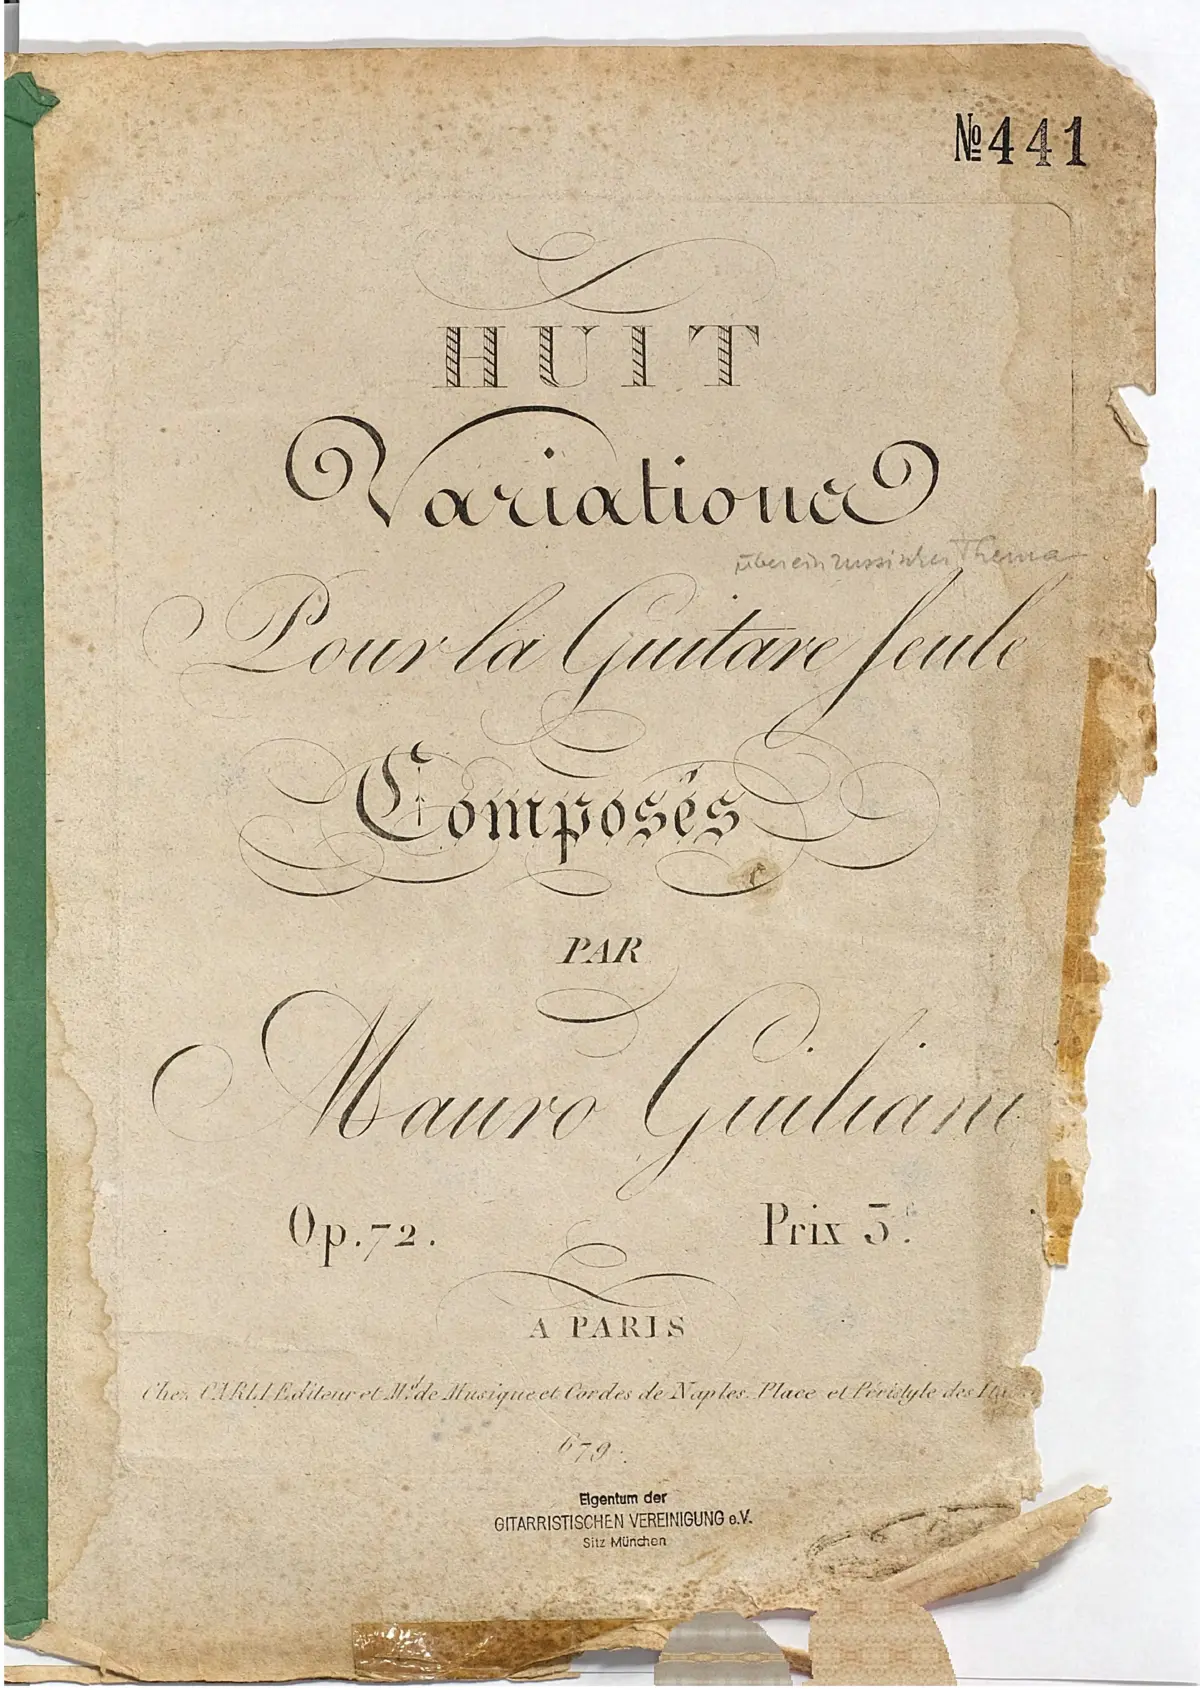 №441
HUIT
Variations
über ein russisches Thema
Pour la Guitare seule
Composés
PAR
Mauro Guiliani
Op. 72.
Prix 3.f
A PARIS
Chez CARLI Editeur et Md. de Musique et Cordes de Naples. Place et Péristyle des
679.
Eigentum der
GITARRISTISCHEN VEREINIGUNG e.V.
Sitz München